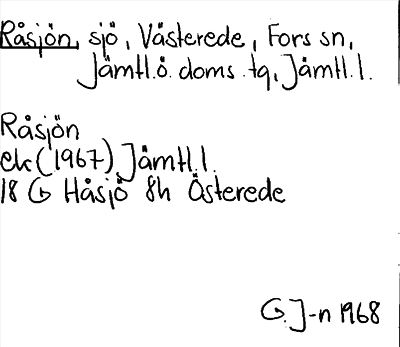 Råsjön, sjö, Västerede, Fors sn,
Jämtl.ö. doms.tg, Jämtl.l.
Råsjön
ek (1967) Jämtl.l.
18 G Håsjö 8h Österede
G.J-n 1968